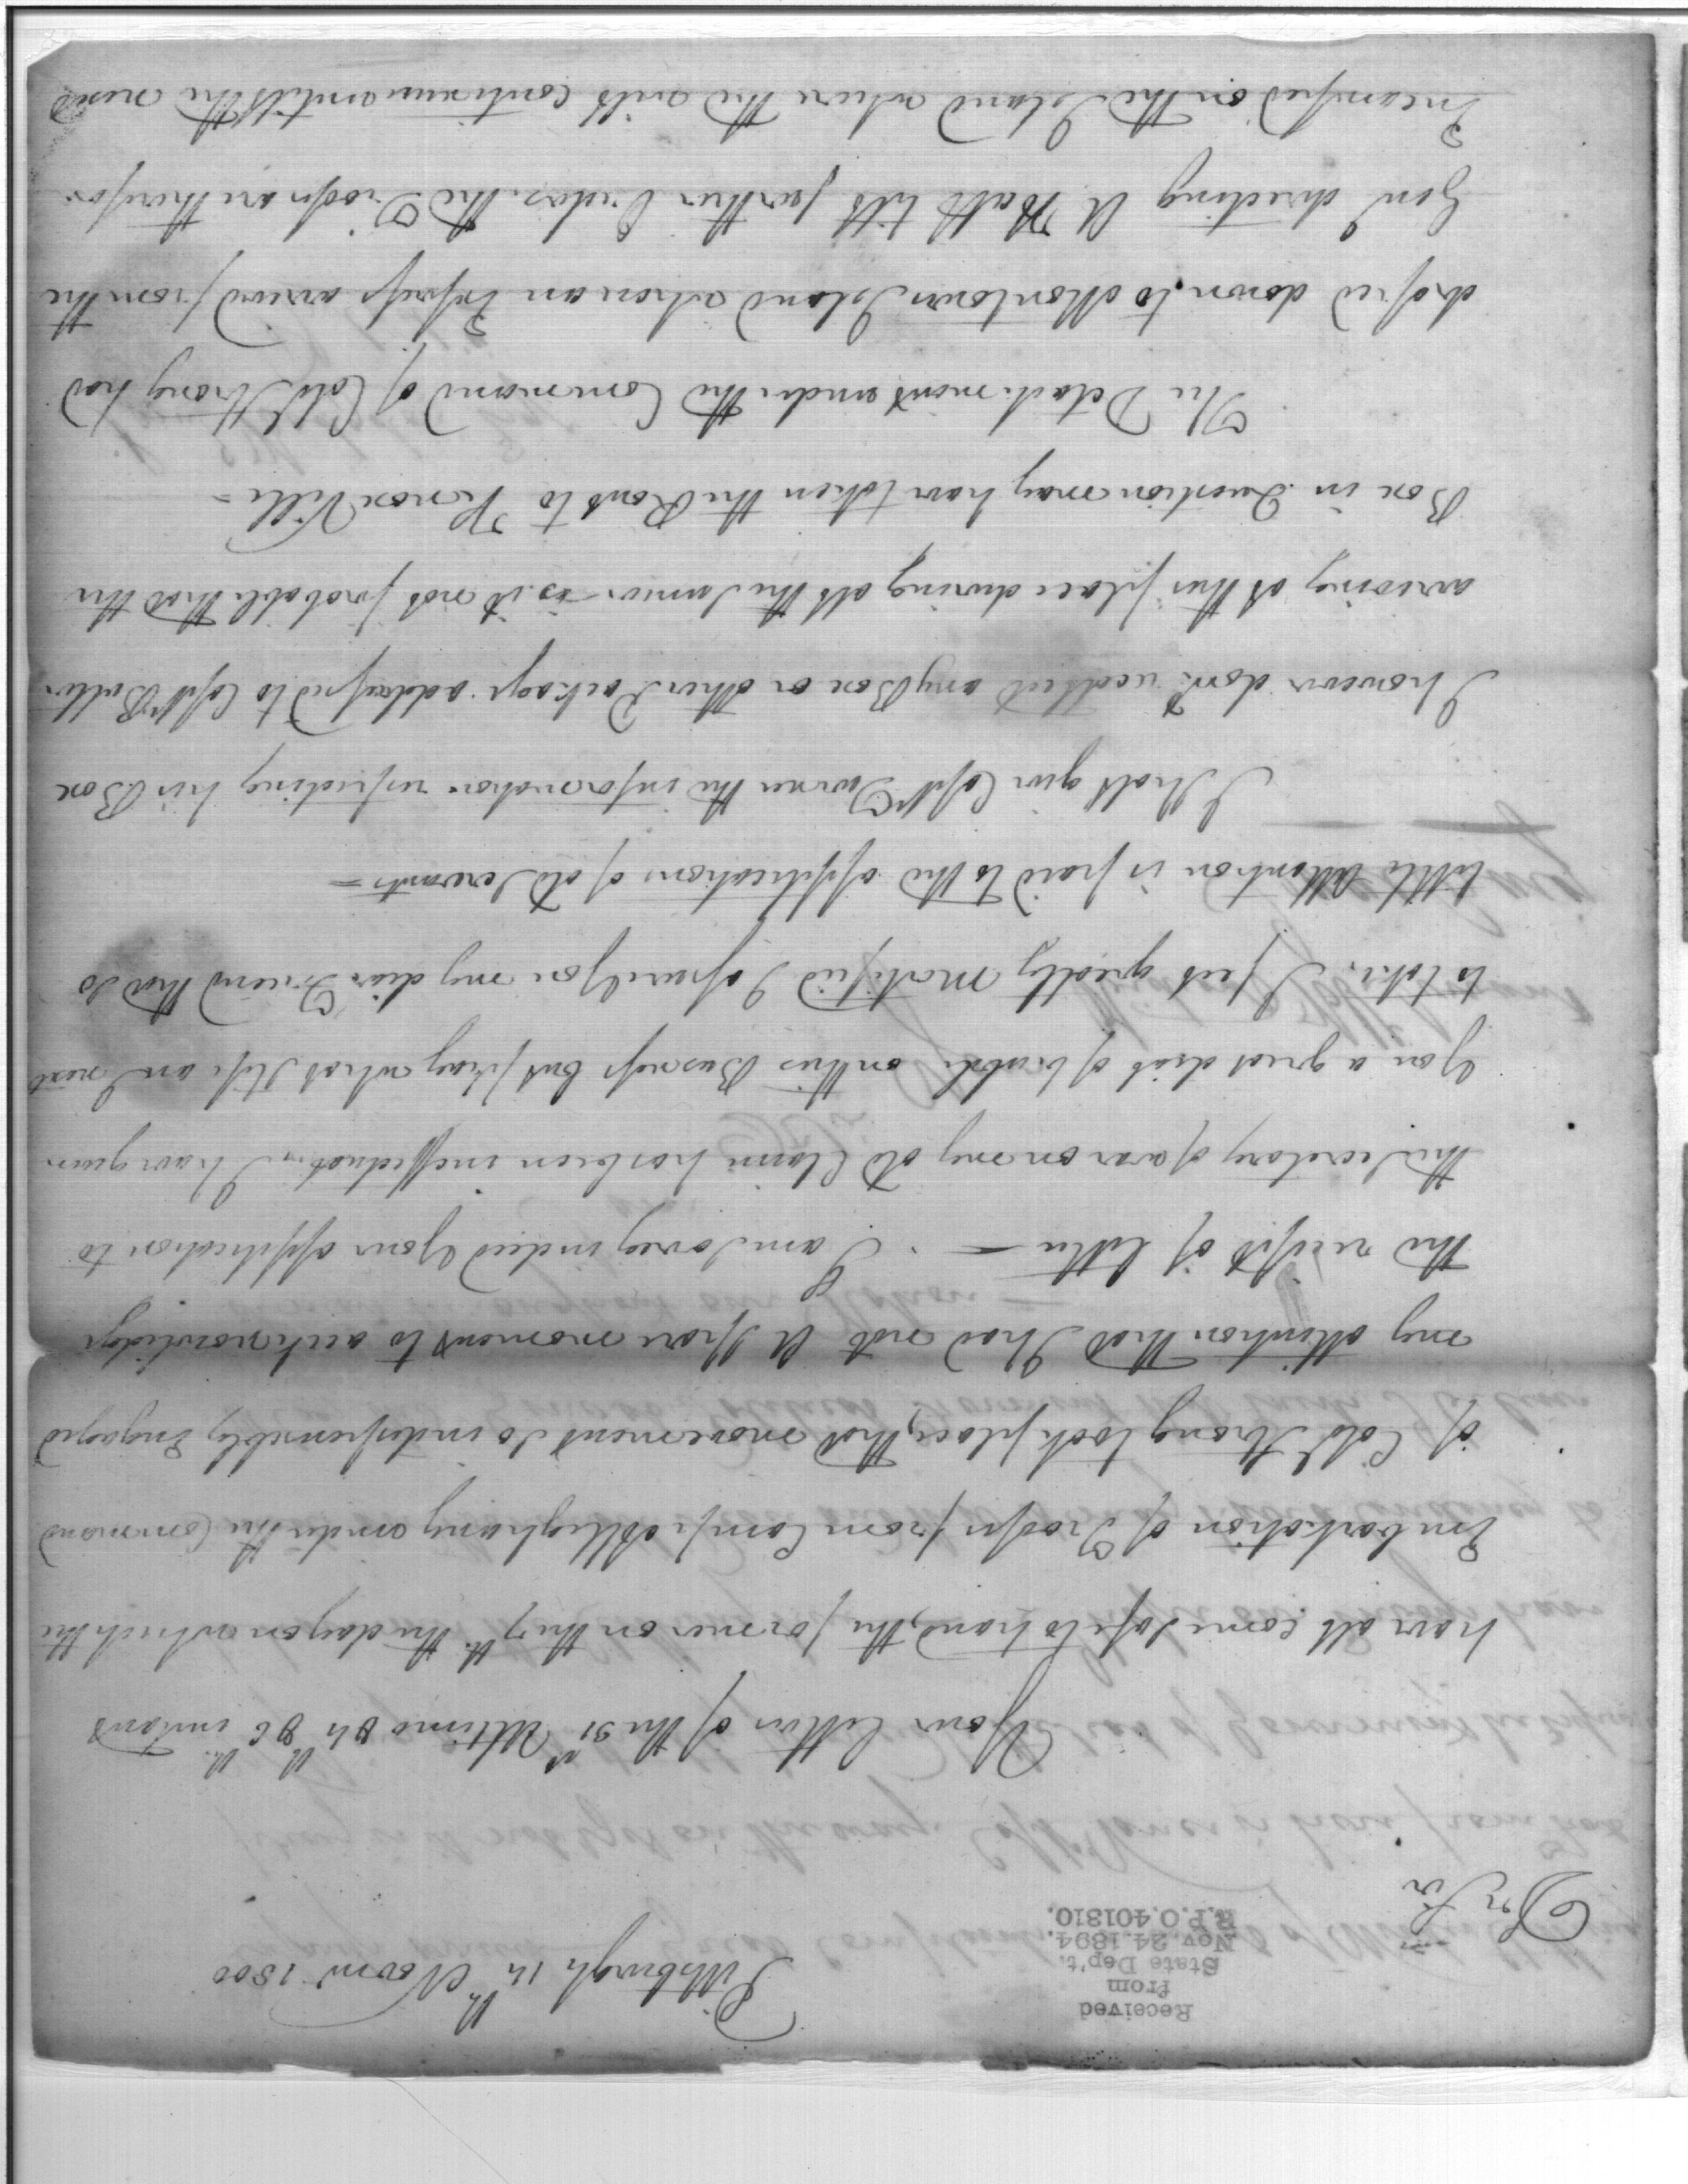 Received
from
State Dep't.
Nov. 24. 1894.
R.P.O. 401310.
Pittsburgh 14th Novemr 1800
Dr Sir
Your letters of the 31st Ultimo 4th & 6th instant
have all come safe to hand, the former on the 7th the day on which the
Embarkation of Troops from Camp Alleghany under the Command
of Colo Strong took place, that movement so indispensibly Engaged
my attention that I had not a spare moment to acknowledge
the receipt of letter — I am Sorry indeed your application to
the Secretary of war on my old Claim has been ineffectual. I have given
you a great deal of trouble on this Business but pray what Step am I next
to take. I feel greatly mortified I assure you my dear Friend that so
little attention is paid to the applications of old Servants —
I shall give Capt Turner the information respecting his Box
I however dont recollect any Box or other Package addressed to Capt Butler
arriving at this place during all the Summer — is it not probable that the
Box in Question may have taken the Rout to Knox Ville —
The Detachment under the Command of Colo Strong had
droped down to Montours Island when an Express arrived from the
Genl directing a Halt till further Orders. the Troops are therefor
Encamped on the Island where they will continue untill the next